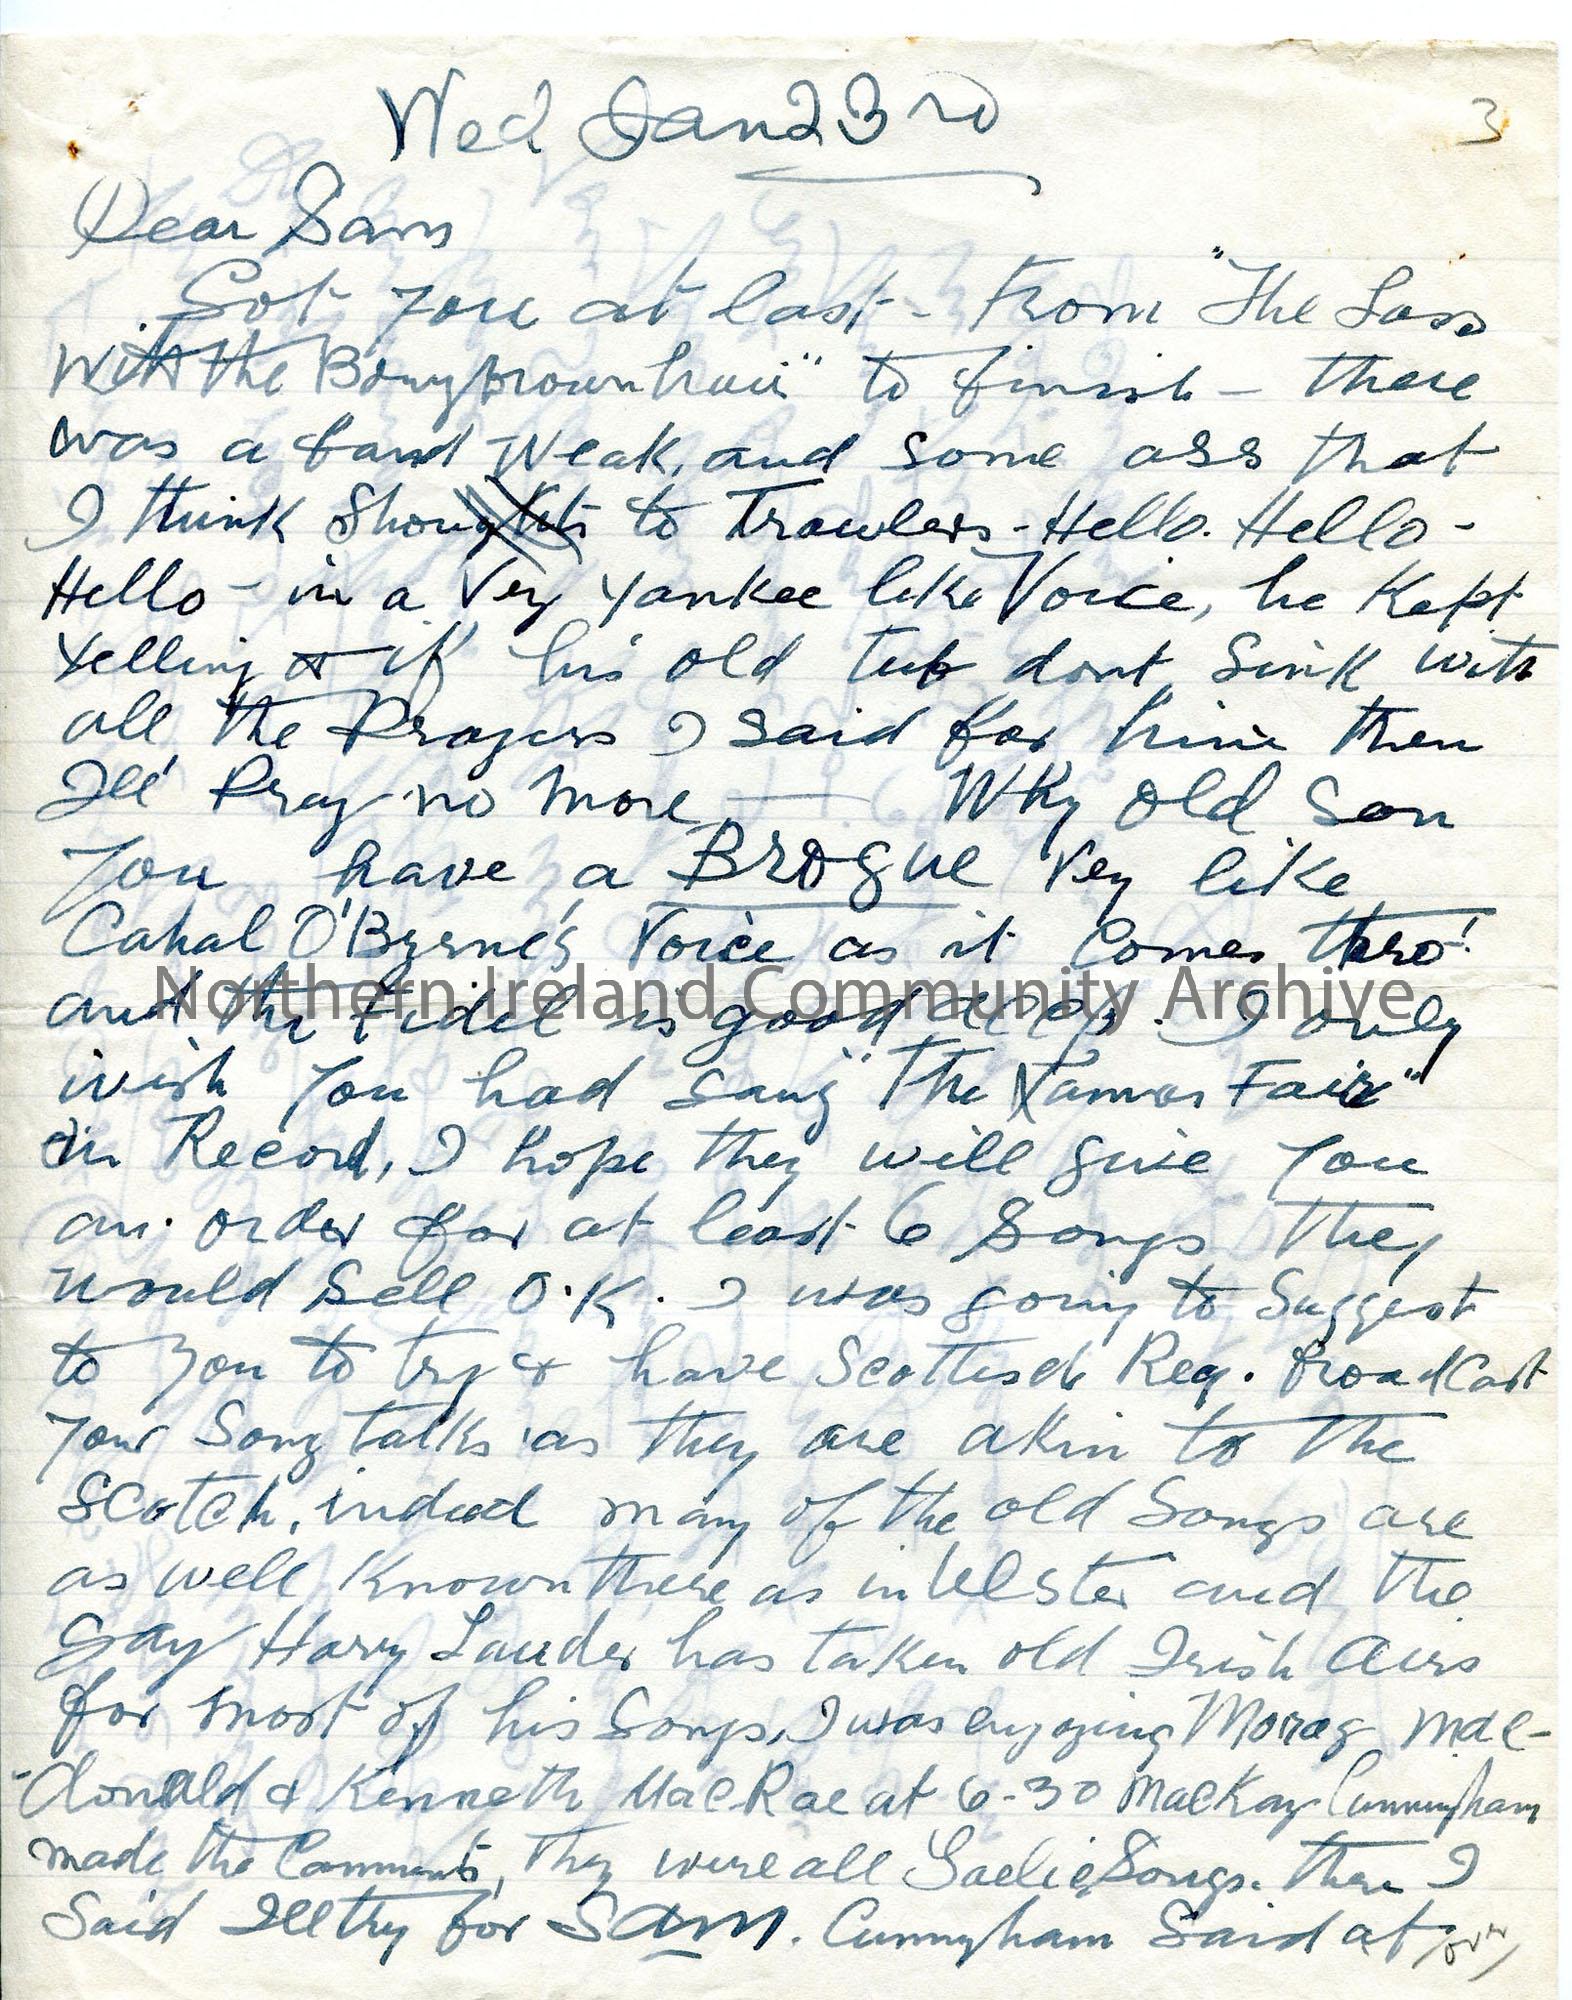 Wed Jan 23rd
3
Dear Sam
Got you at last - From "The Lass
With the Bony brown hair" to finish - there
was a band Weak, and some ass that
I think Shouts to Trawlers - Hello. Hello -
Hello - in a Very Yankee like Voice, he Kept
Yelling & if his old tub dont Sink with
all the Prayers I said for him then
Ill Pray no more - Why Old Son
You have a Brogue Very like
Cahal O'Byrne's Voice as it Comes thro'
and the Fidel is good . I only
wish you had sang "The Fair"
on Record, I hope they will give you
an order for at least 6 Songs They
would Sell O.K. I was going to Suggest
to you to try & have Scottish Reg. broadCast
your Song talks as they are akin to the
Scotch, indeed many of the old Songs are
as well Known there as in Ulster and the
Gay Harry Lauder has taken old Irish Airs
for most of his Songs. I was enjoying Morag Mac-
-donald & Kenneth MacRae at 6-30 MacKay Cunningham
made the Comments, They were all Gaelic Songs. then I
Said Ill try for SAM. Cunnyham Said at over
Northern Ireland Community Archive